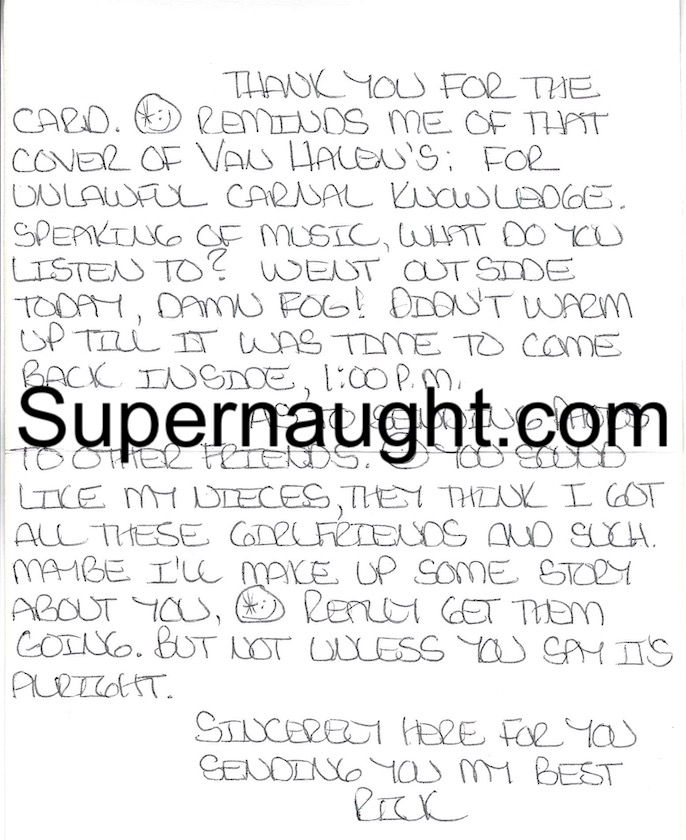 THANK YOU FOR THE
CARD. REMINDS ME OF THAT
COVER OF VAN HALEN'S: FOR
UNLAWFUL CARNAL KNOWLEDGE.
SPEAKING OF MUSIC, WHAT DO YOU
LISTEN TO? WENT OUTSIDE
TODAY, DAMN FOG! DIDN'T WARM
UP TILL IT WAS TIME TO COME
BACK INSIDE, 1:00 P.M.
Supernaught.com
AS TO SENDING PHOTOS
TO OTHER FRIENDS. YOU SOUND
LIKE MY NIECES, THEY THINK I GOT
ALL THESE GIRLFRIENDS AND SUCH.
MAYBE I'LL MAKE UP SOME STORY
ABOUT YOU, REALLY GET THEM
GOING. BUT NOT UNLESS YOU SAY IT'S
ALRIGHT.
SINCERELY HERE FOR YOU
SENDING YOU MY BEST
RICK